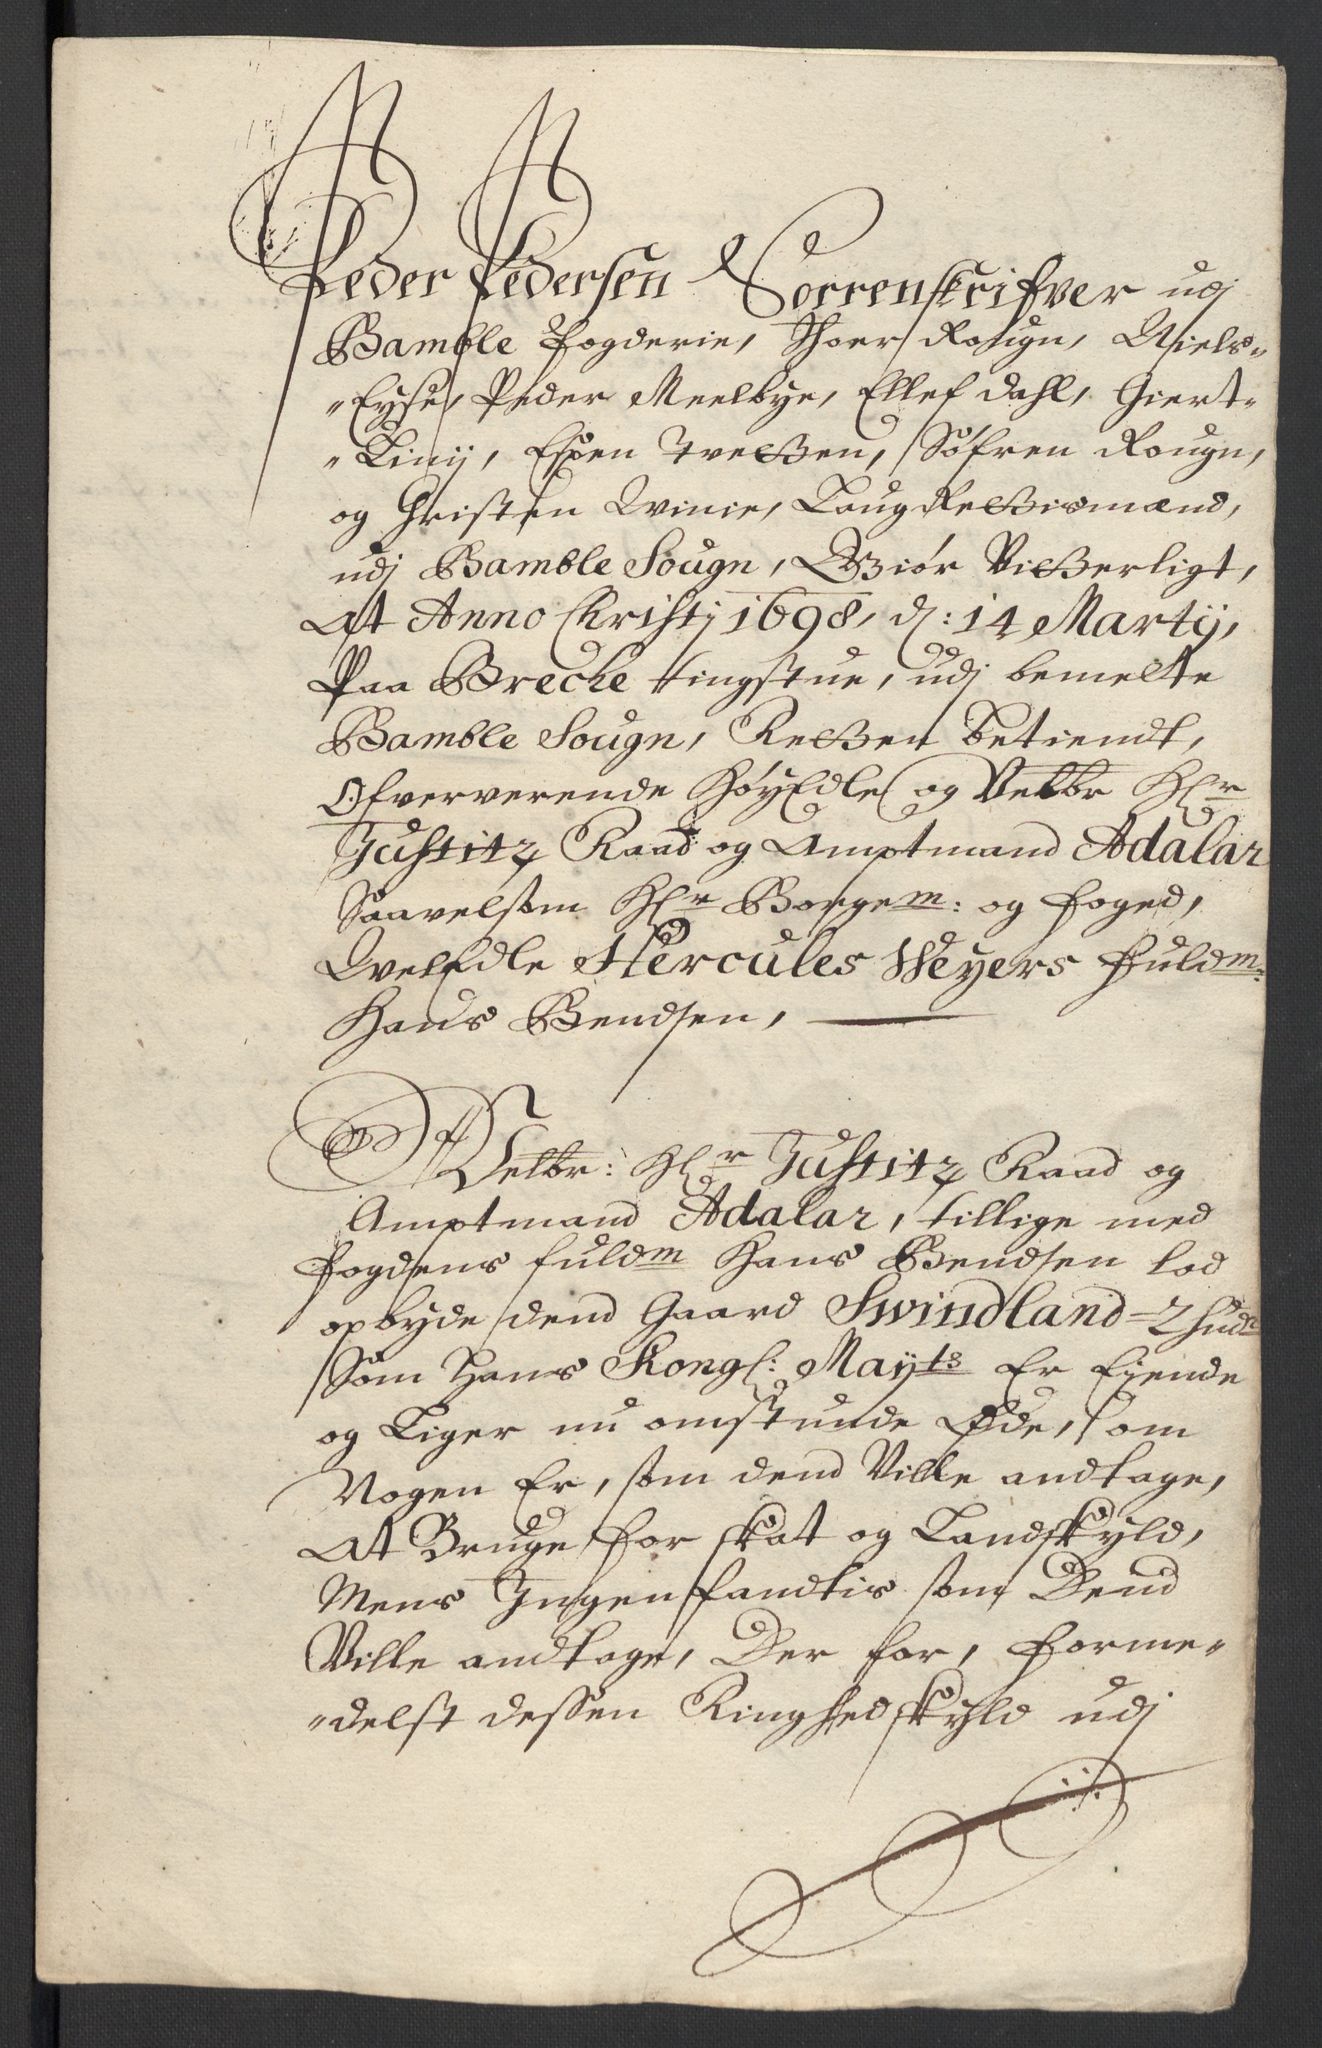 Peder Pedersen Sorrenskrifver udj
Bamble Fogderie, Thoer Rougn, Niels„
„Eyse, Peder Meelbye, Ellef Dahl, Giert„
„Linij, Espen Tveßen, Söfren Rougn,
og Christen Winie, LaugRettismænd,
udj Bamble Sougn, Giör Vitterligt,
At Anno Christj 1698, d: 14 Martij,
Paa Brecke tingstue, udj bemelte
Bamble Sougn, Retten betiendt,
Ofververende HöyEdle og Velbr Hr
Justitz Raad og Amptmand Adalar
Saavelsom Hr Borgem: og foged,
VelEdle Hercules Weyers fuldm:
Hans Bendsen,
Velbr: Hr Justitz Raad og
Amptmand Adalar, tillige med
fogdens fuldm Hans Bendsen lod
opbyde dend Gaard Swindland 2 hudr
Som Hans Kongl: Mayts Er Eiende
og Liger nu omstunde Øde, om
Nogen Er, som dend Ville andtage,
At Bruge for skat og Landskyld,
Mens Ingen fandtis som Dend
Ville andtage, Der for, forme„
„delst dessen Ringhed skyld udj